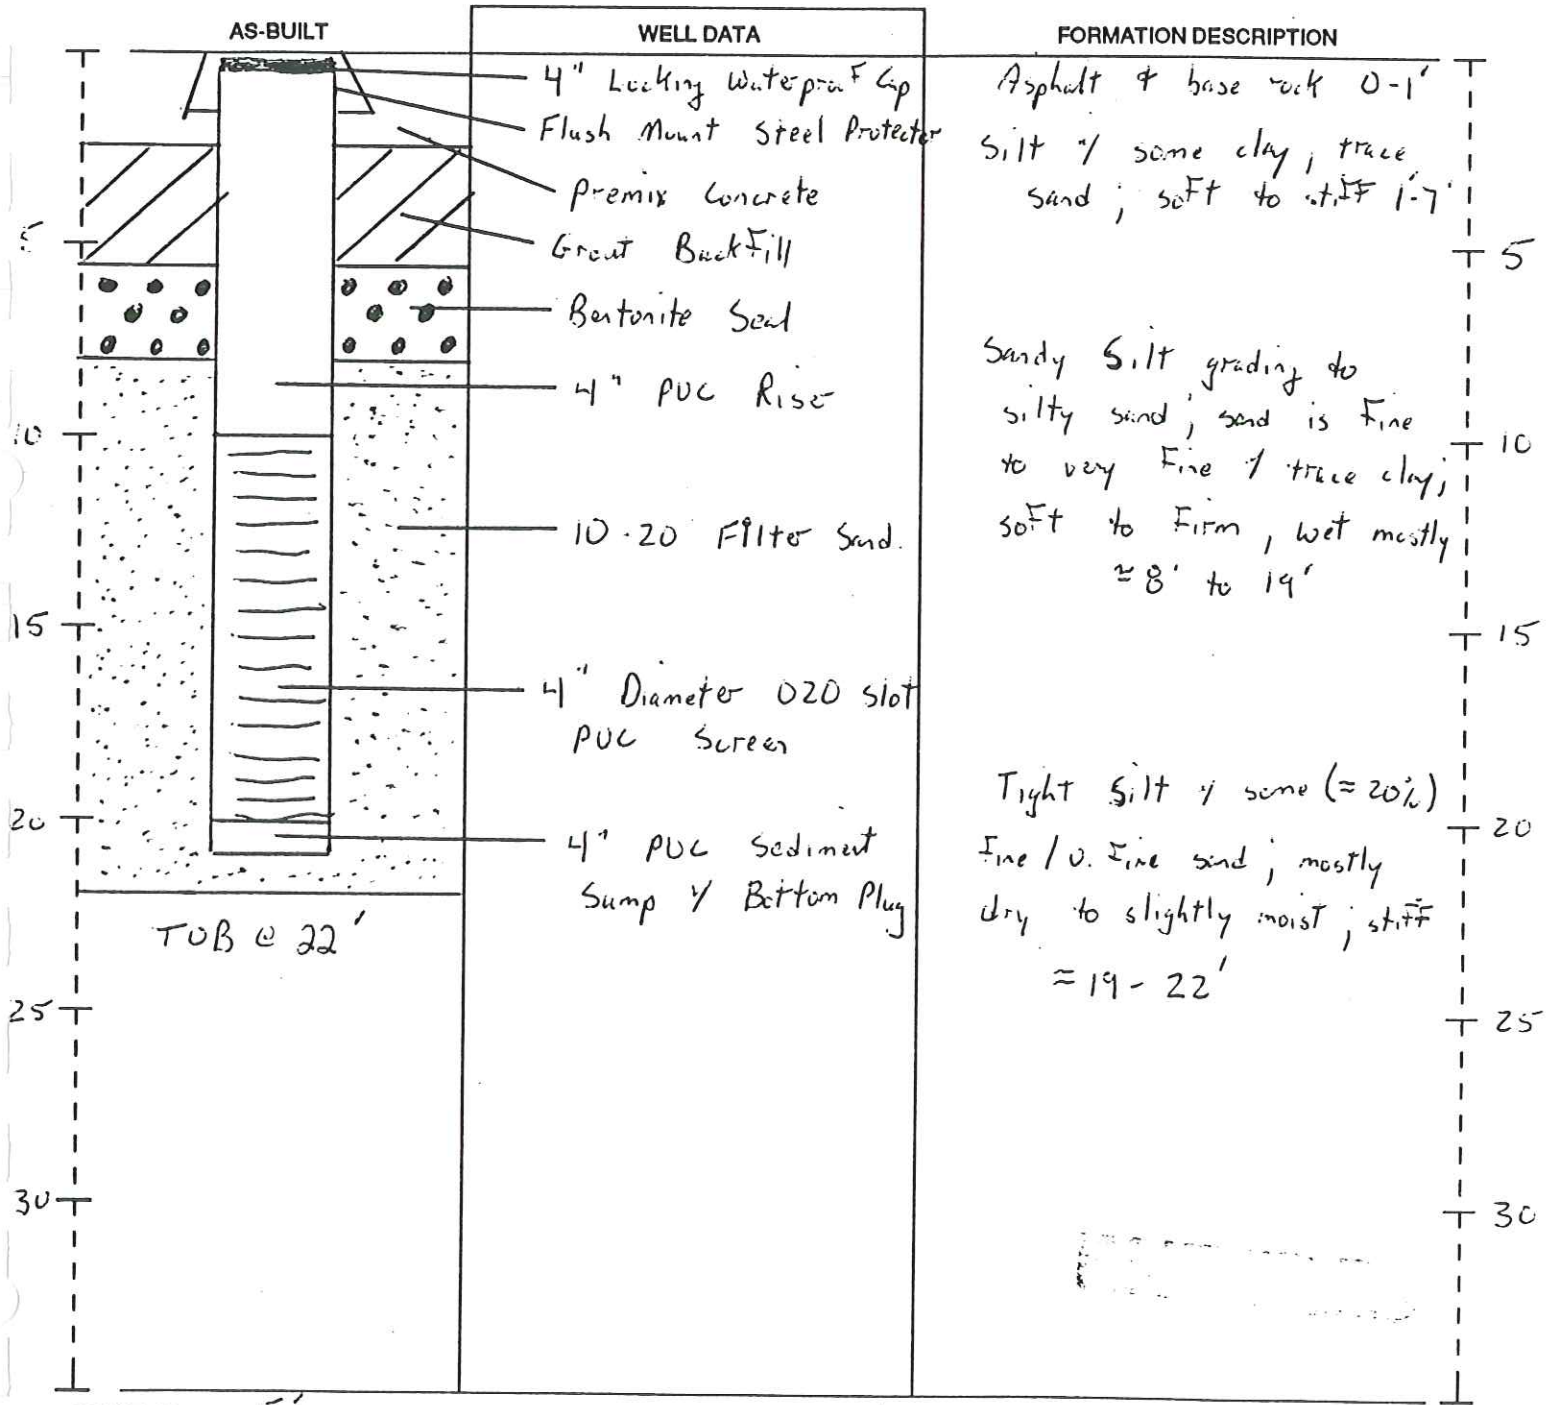 AS-BUILT
WELL DATA
FORMATION DESCRIPTION
4" Locking Waterproof Cap
Flush Mount Steel Protecter
Premix Concrete
Grout Backfill
Bentonite Seal
4" PVC Riser
10-20 Filter Sand.
4" Diameter 020 slot
PVC Screen
4" PVC Sediment
Sump w/ Bottom Plug
TOB @ 22'
Asphalt & base rock 0-1'
Silt w/ some clay, trace
sand; soft to stiff 1'-7'
Sandy Silt grading to
silty sand; sand is Fine
to very Fine w/ trace clay;
soft to Firm, wet mostly
≈ 8' to 19'
Tight Silt w/ some (≈ 20%)
Fine / v. Fine sand; mostly
dry to slightly moist; stiff
≈ 19 - 22'
5
10
15
20
25
30
5
10
15
20
25
30